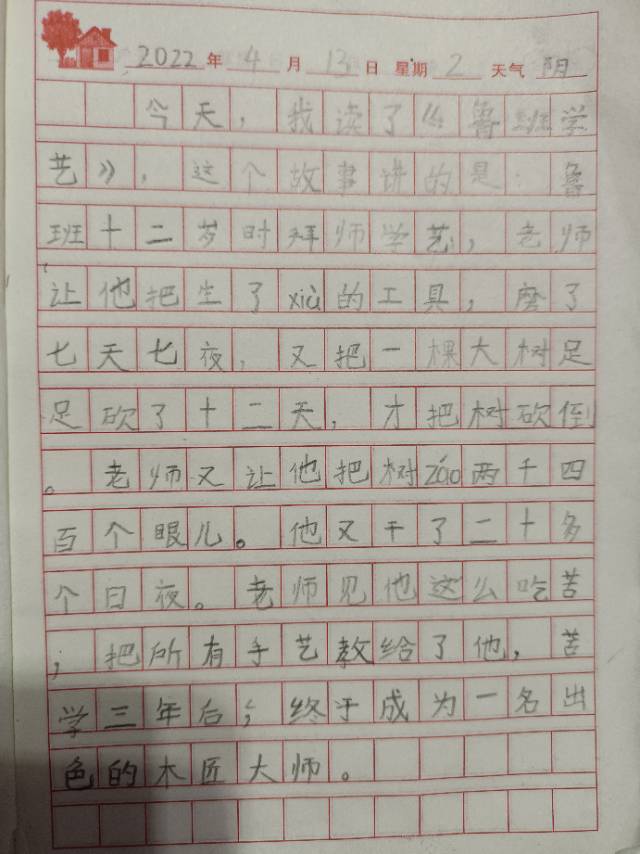 2022年4月13日 星期2 天气阴
今天，我读了《鲁班学
艺》，这个故事讲的是：鲁
班十二岁时拜师学艺，老师
让他把生了xiù的工具，磨了
七天七夜，又把一棵大树足
足砍了十二天，才把树砍倒
。老师又让他把树záo两千四
百个眼儿。他又干了二十多
个日夜。老师见他这么吃苦
，把所有手艺教给了他，苦
学三年后，终于成为一名出
色的木匠大师。